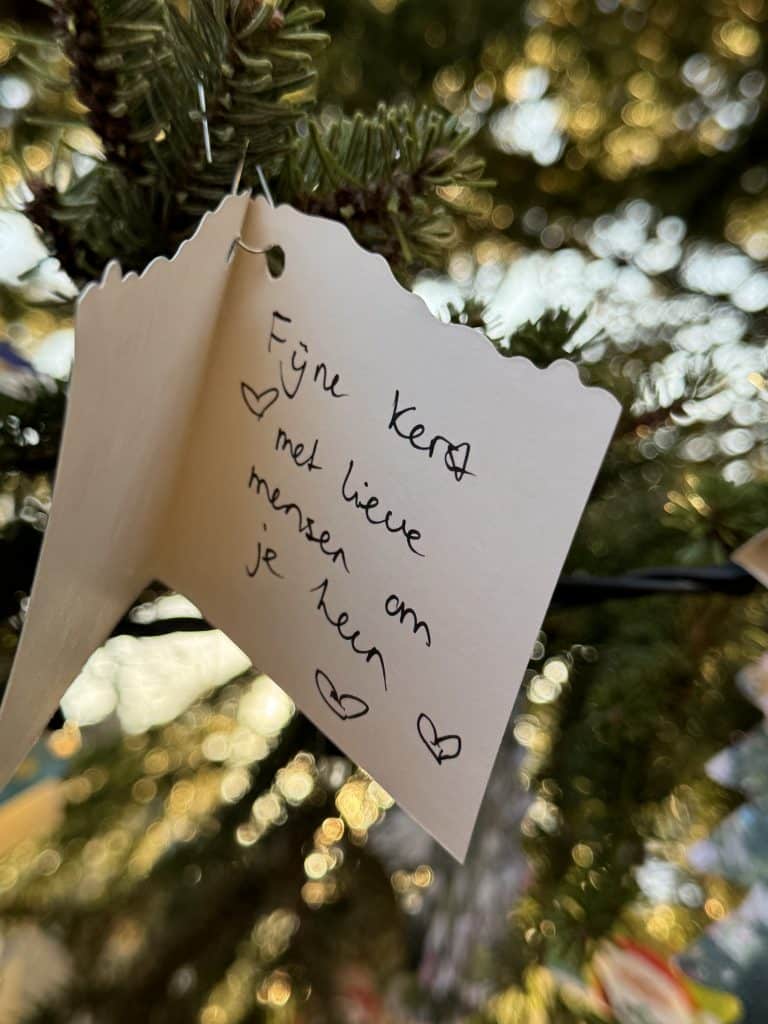 Fijne Kerst
met lieve
mensen om
je heen